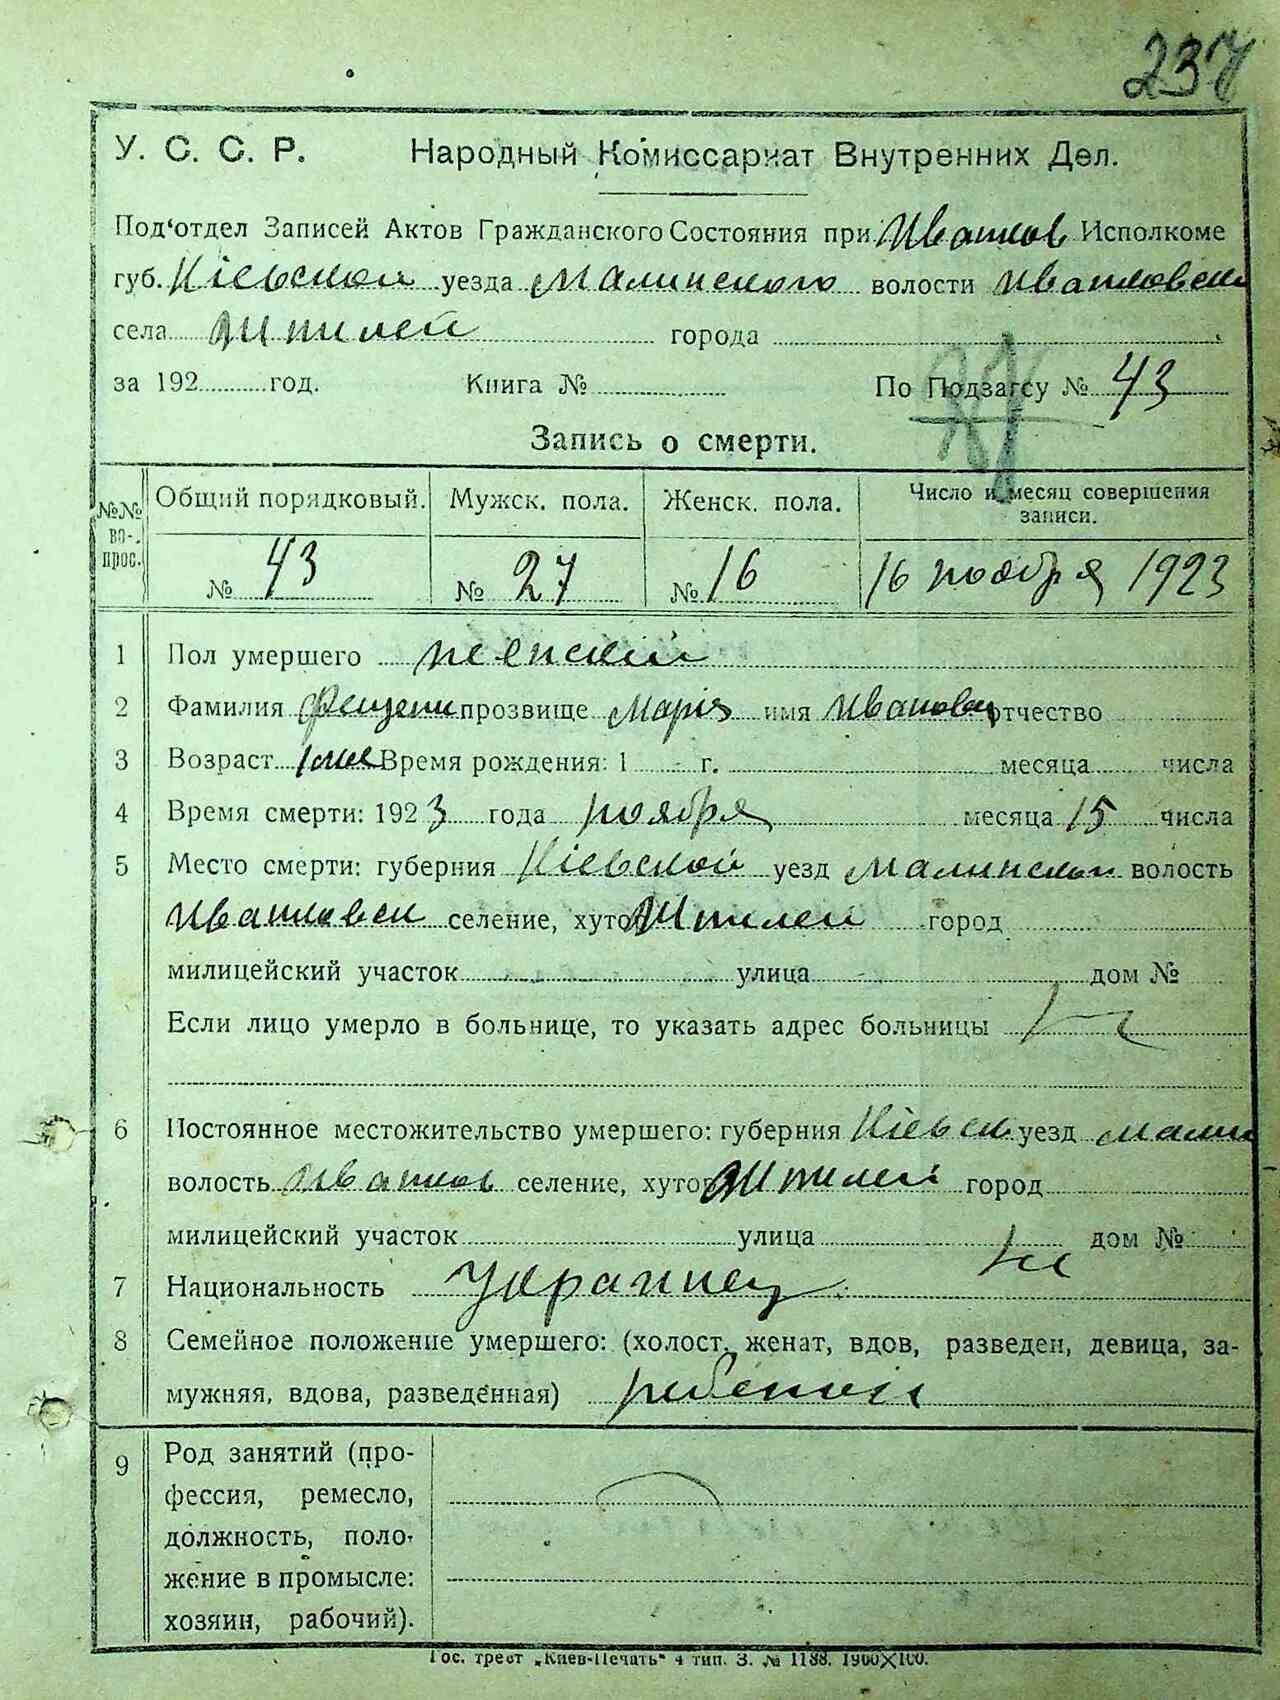 237
У. С. С. Р. Народный Комиссариат Внутренних Дел.
Под‘отдел Записей Актов Гражданского Состояния при Ивашков Исполкоме
губ. Кіевской уезда Малинского волости Ивашковской
села города
за 192 год. Книга № По Подзагсу № 43
Запись о смерти.
№№ во-прос. Общий порядковый. Мужск. пола. Женск. пола. Число и месяц совершения записи.
№ 43 № 27 № 16 16 ноября 1923
1 Пол умершего женский
2 Фамилия прозвище Марія имя Ивановна отчество
3 Возраст Время рождения: 1 г. месяца числа
4 Время смерти: 1923 года ноября месяца 15 числа
5 Место смерти: губерния Кіевской уезд Малинской волость
Ивашковск селение, хутор город
милицейский участок улица дом №
Если лицо умерло в больнице, то указать адрес больницы
6 Постоянное местожительство умершего: губерния Кіевск уезд Малин
волость Ивашков селение, хутор город
милицейский участок улица дом №
7 Национальность Украинец
8 Семейное положение умершего: (холост, женат, вдов, разведен, девица, за-
мужняя, вдова, разведенная) ребенок
9 Род занятий (про-
фессия, ремесло,
должность, поло-
жение в промысле:
хозяин, рабочий).
Гос. трест „Киев-Печать“ 4 тип. З. № 1188. 1900×100.